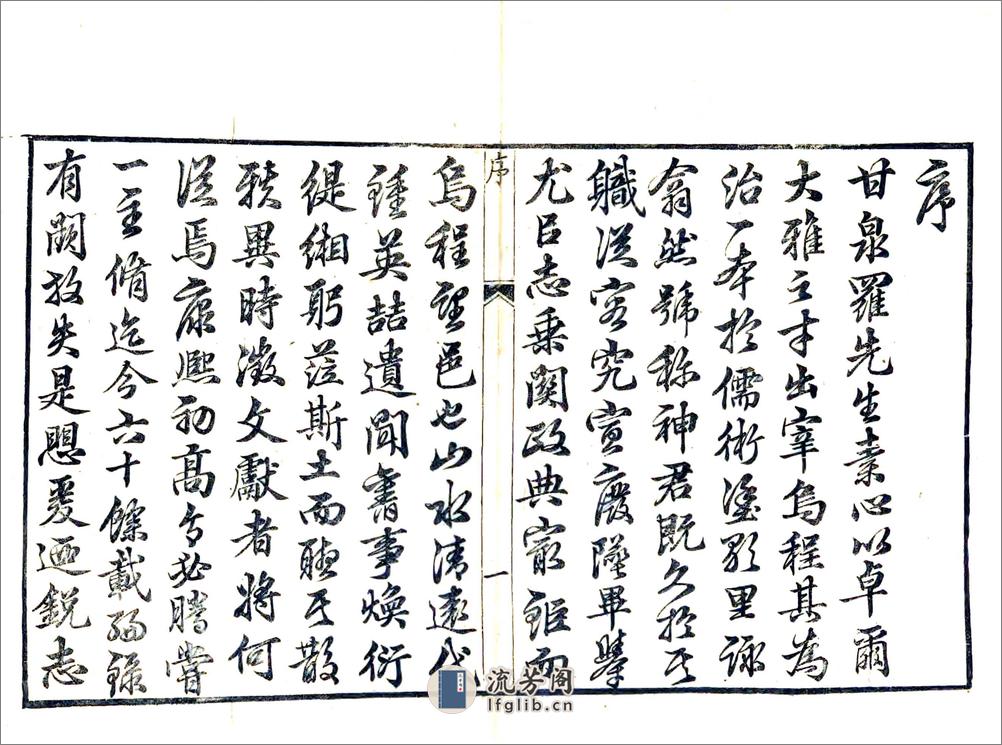 序
甘泉羅先生素心以卓爾
大雅之才出宰烏程其為
治一本於儒術塗歌里詠
翕然號称神君既久於其
職從容究宣廢墜畢舉
尤㠯志乘関政典㝡鉅而
序
一
烏程望邑也山水清遠代
鍾英喆遺聞舊事煥衍
緹緗躬莅斯土而聽其散
軼異時徵文獻者將何
從焉康熙初高令必騰嘗
一主脩迄今六十餘載錄
有闕放失是愳爰迺銳志
流芳阁
lfglib.cn